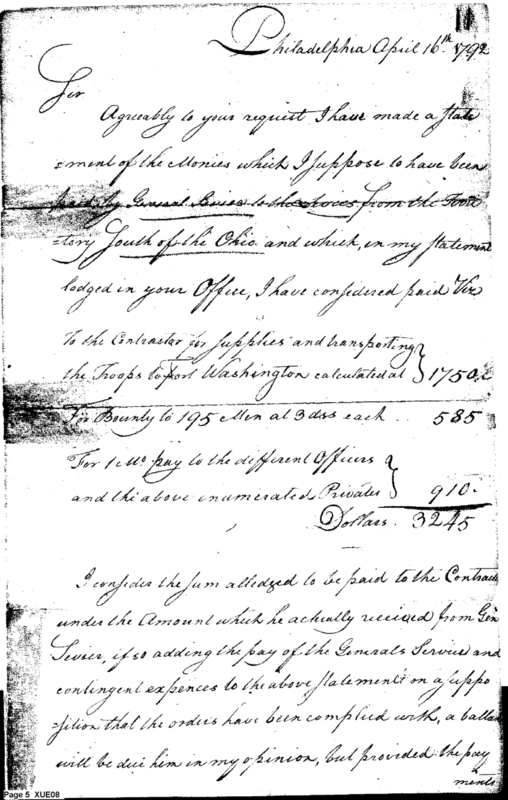 Philadelphia April 16th. 1792
Sir
Agreeably to your request I have made a State
=ment of the Monies which I suppose to have been
paid by General Sevier to the from the Terri
=tory South of the Ohio and which, in my Statement
lodged in your Office, I have considered paid Viz
To the Contractor for supplies and transporting
the Troops to Fort Washington calculated at } 1750.
For Bounty to 195 Men at 3 dss each .. 585
For 1 Mo. pay to the different Officers
and the above enumerated Privates } 910.
Dollars. 3245
I consider the sum alledged to be paid to the Contract
under the Amount which he actually received from Gen
Sevier, if so adding the pay of the Generals Service and
contingent expences to the above Statement on a suppo
=sition that the orders have been complied with, a ballan
will be due him in my opinion, but provided the pay
ments
Page 5 XUE08